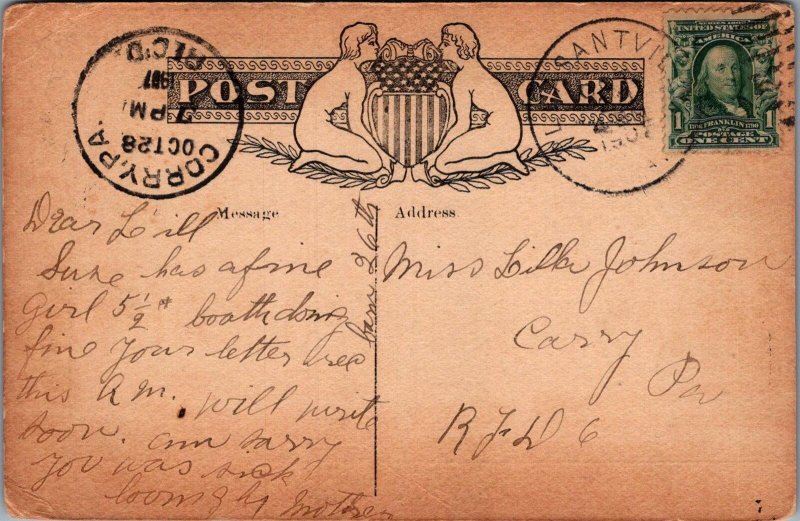 CORRY, PA.
OCT 28
7 PM
1907
REC'D.
POST CARD
SERIES 1902
UNITED STATES OF
AMERICA
1706 FRANKLIN 1790
1 POSTAGE 1
ONE CENT
RANTVI
Message
Address
Dear Lill
Suze has a fine
girl 5 1/2 # boath doing
fine your letter rec
this A.M. will write
soon. am sorry
you was sick
Mother
26th
Miss Lilla Johnson
Corry
Pa
R F D 6